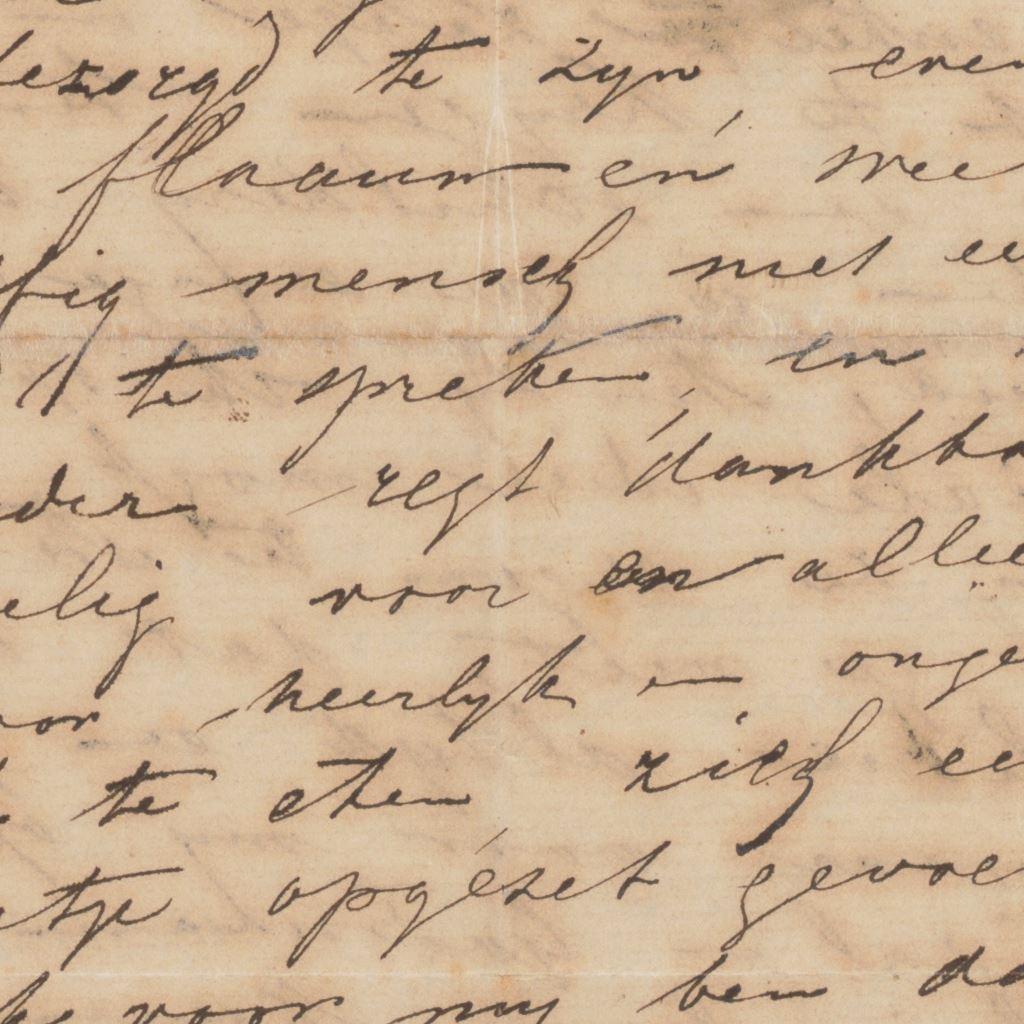 bezorgd te zyn, even
flaauw en wee
fig mensch met ee
te spreken, en
eder regt dankba
elig voor en allee
oor heerlyk – onge
te eten zich ee
etje opgezet gevoe
voor my ben da